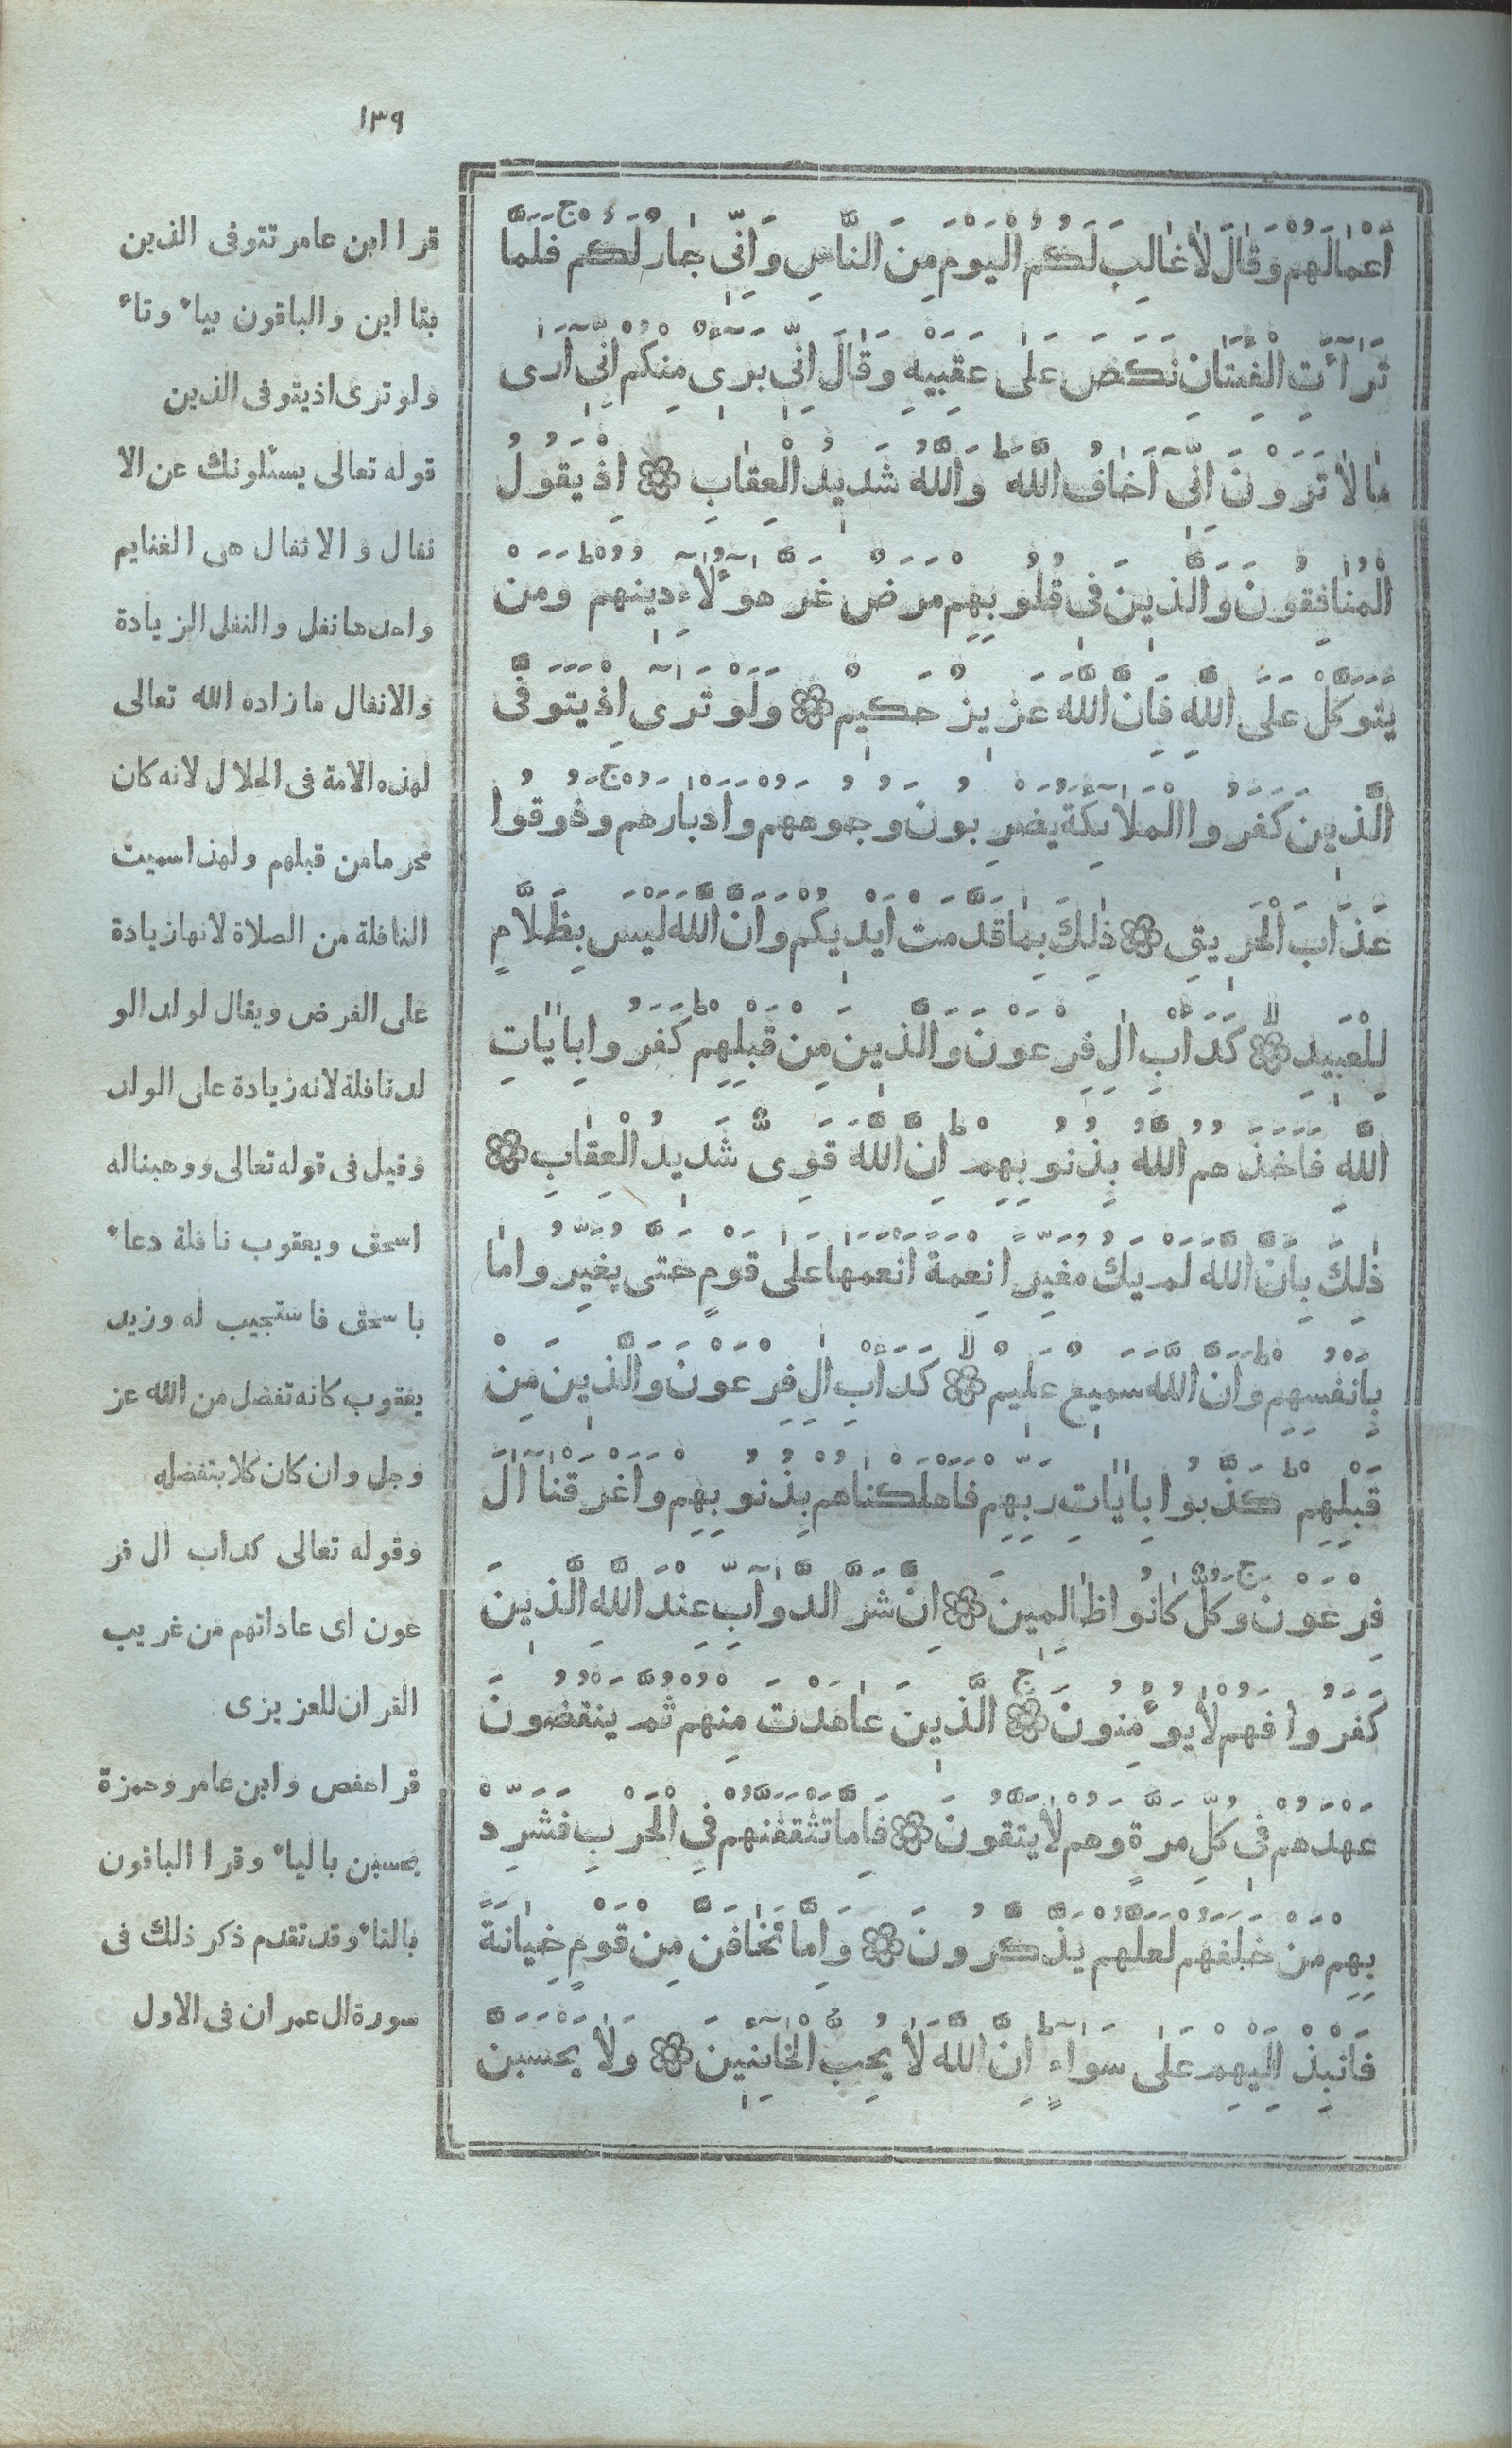 ١٣٩
أَعْمٰالَهُمْ وَقٰالَ لاٰغٰالِبَ لَكُمُ الْيَوْمَ مِنَ النَّاسِ وَاِنّٖى جٰارٌ لَكُمْ ج فَلَمَّا
تَرٰآءَتِ الْفِئَتٰانِ نَكَصَ عَلٰى عَقِبَيْهِ وَقٰالَ اِنّٖى بَرٖٓىءٌ مِنْكُمْ اِنّٖٓى اَرٰى
مٰا لاٰ تَرَوْنَ اِنّٖٓى اَخٰافُ اللّٰهَ ط وَاللّٰهُ شَدٖيدُ الْعِقٰابِ ۞ اِذْ يَقُولُ
الْمُنٰافِقُونَ وَالَّذٖينَ فٖى قُلُوبِهِمْ مَرَضٌ غَرَّ هٰٓؤُلآٰءِ دٖينُهُمْ ط وَمَنْ
يَتَوَكَّلْ عَلَى اللّٰهِ فَاِنَّ اللّٰهَ عَزٖيزٌ حَكٖيمٌ ۞ وَلَوْ تَرٰٓى اِذْ يَتَوَفَّى
الَّذٖينَ كَفَرُوا الْمَلآٰئِكَةُ يَضْرِبُونَ وُجُوهَهُمْ وَاَدْبٰارَهُمْ ج وَذُوقُوا
عَذَابَ الْحَرٖيقِ ۞ ذٰلِكَ بِمٰا قَدَّمَتْ اَيْدٖيكُمْ وَاَنَّ اللّٰهَ لَيْسَ بِظَلَّامٍ
لِلْعَبٖيدِ لا ۞ كَدَأْبِ اٰلِ فِرْعَوْنَ وَالَّذٖينَ مِنْ قَبْلِهِمْ ط كَفَرُوا بِاٰيٰاتِ
اللّٰهِ فَاَخَذَهُمُ اللّٰهُ بِذُنُوبِهِمْ ط اِنَّ اللّٰهَ قَوِىٌّ شَدٖيدُ الْعِقٰابِ ۞
ذٰلِكَ بِاَنَّ اللّٰهَ لَمْ يَكُ مُغَيِّرًا نِعْمَةً اَنْعَمَهٰا عَلٰى قَوْمٍ حَتّٰى يُغَيِّرُوا مٰا
بِاَنْفُسِهِمْ ط وَاَنَّ اللّٰهَ سَمٖيعٌ عَلٖيمٌ لا ۞ كَدَأْبِ اٰلِ فِرْعَوْنَ وَالَّذٖينَ مِنْ
قَبْلِهِمْ ط كَذَّبُوا بِاٰيٰاتِ رَبِّهِمْ فَاَهْلَكْنٰاهُمْ بِذُنُوبِهِمْ وَاَغْرَقْنٰٓا اٰلَ
فِرْعَوْنَ ج وَكُلٌّ كٰانُوا ظٰالِمٖينَ ۞ اِنَّ شَرَّ الدَّوٰآبِّ عِنْدَ اللّٰهِ الَّذٖينَ
كَفَرُوا فَهُمْ لاٰيُؤْمِنُونَ ج ۞ الَّذٖينَ عٰاهَدْتَ مِنْهُمْ ثُمَّ يَنْقُضُونَ
عَهْدَهُمْ فٖى كُلِّ مَرَّةٍ وَهُمْ لاٰيَتَّقُونَ ۞ فَاِمَّا تَثْقَفَنَّهُمْ فِى الْحَرْبِ فَشَرِّدْ
بِهِمْ مَنْ خَلْفَهُمْ لَعَلَّهُمْ يَذَّكَّرُونَ ۞ وَاِمَّا تَخٰافَنَّ مِنْ قَوْمٍ خِيٰانَةً
فَانْبِذْ اِلَيْهِمْ عَلٰى سَوٰآءٍ ط اِنَّ اللّٰهَ لاٰ يُحِبُّ الْخٰآئِنٖينَ ۞ وَلاٰ يَحْسَبَنَّ
قرا ابن عامر تتوفى الذين
بتا اين والباقون بياء وتاء
ولو ترى اذ يتوفى الذين
قوله تعالى يسئلونك عن الا
نفال والانفال هى الغنايم
واحدها نفل والنفل الزيادة
والانفال ما زاده الله تعالى
لهذه الامة فى الحلال لانه كان
محرما من قبلهم ولهذا سميت
النافلة من الصلاة لانها زيادة
على الفرض ويقال لولد الو
لد نافلة لانه زيادة على الولد
وقيل فى قوله تعالى ووهبنا له
اسحق ويعقوب نافلة دعاء
باسحق فاستجيب له وزيد
يعقوب كانه تفضل من الله عز
وجل وان كان كلا بتفضله
وقوله تعالى كداب ال فر
عون اى عاداتهم من غريب
القران للعزيزى
قرا حفص وابن عامر وحمزة
يحسبن بالياء وقرا الباقون
بالتاء وقد تقدم ذكر ذلك فى
سورة ال عمران فى الاول